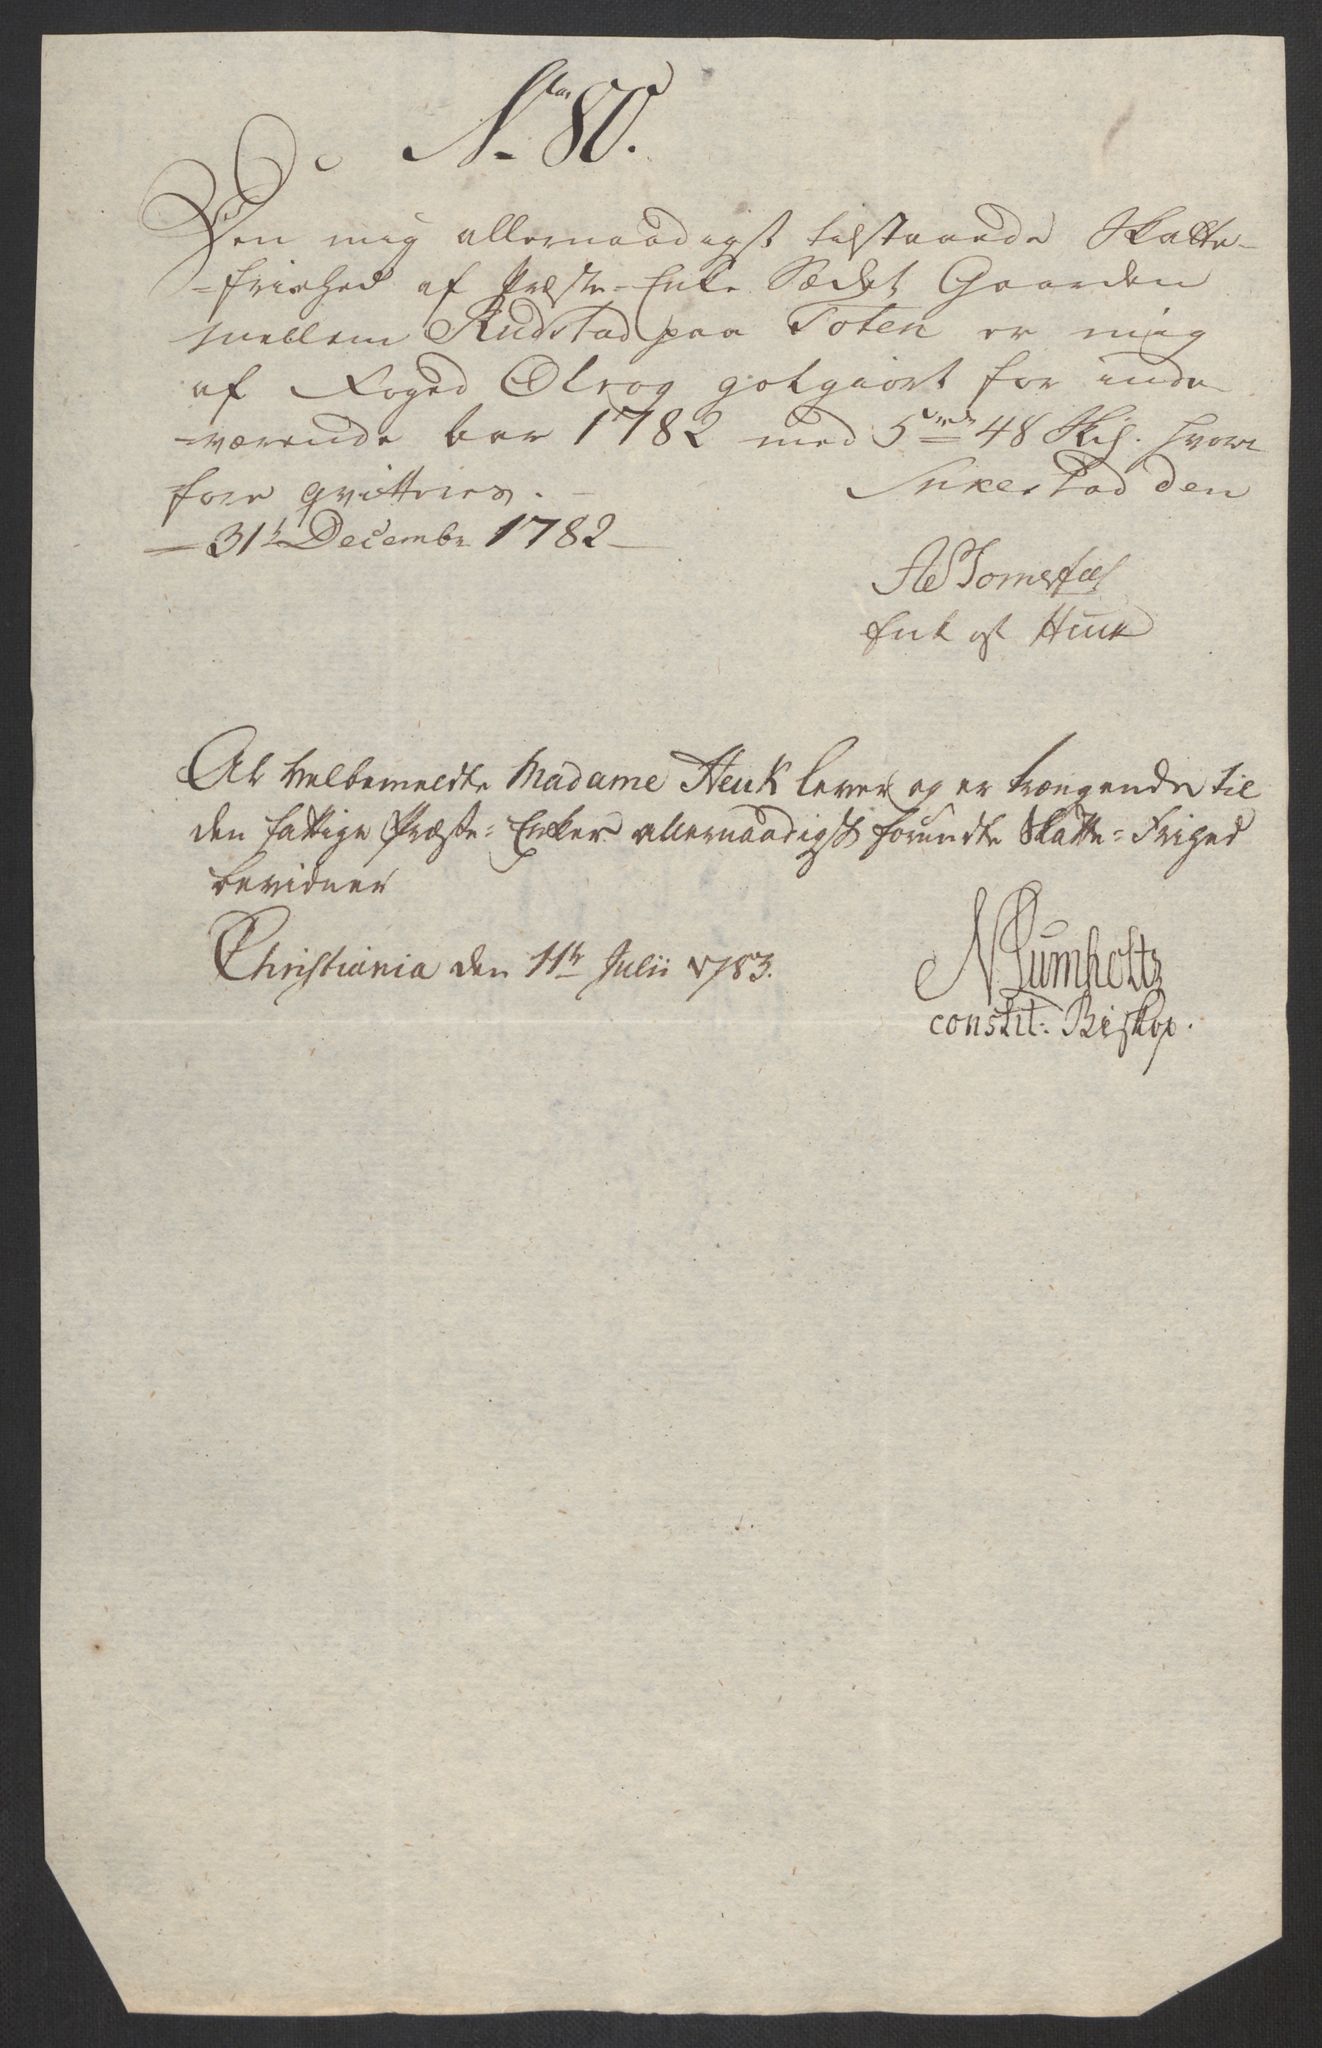 No 80.
Den mig allernaadigst tilstaaede Skatte-
-frihed af Præste-Enke Sædet Gaarden
mellem Rudstad paa Toten er mig
af Foged Olrog gotgiort for inde
-værende aar 1782 med 5 rd 48 Skil. hvor
fore qvitteres.
den
31te Decembr 1782
Enke
At velbemeldte Madame Heuk lever og er trængende til
den fattige Præste-Enker allernaadigst forundte Skatte-Frihed
bevidner
Christiania den 11te Julii 1783.
N Lumholtz
constit: Biskop.